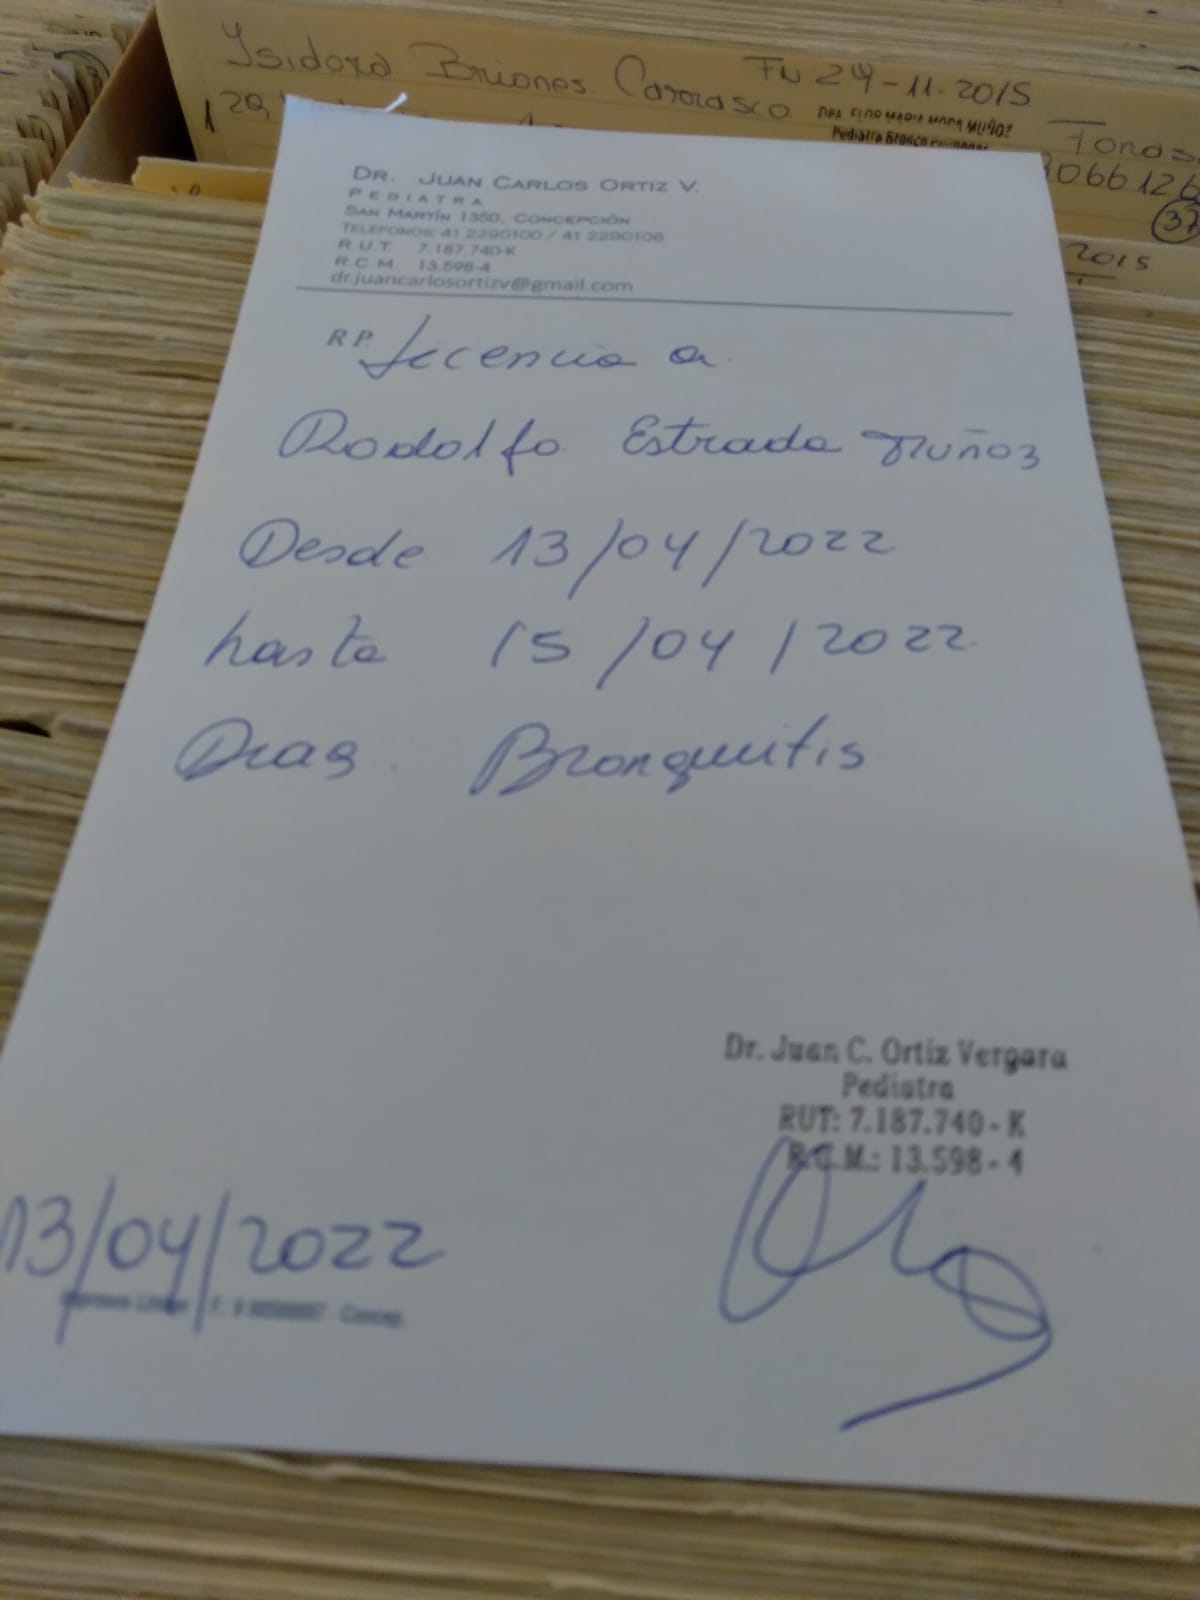 Isidora Briones Carrasco FN 24-11-2015
DRA. FLOR MARIA MORA MUÑOZ
Pediatra Bronco Pulmonar
2015
DR. JUAN CARLOS ORTIZ V.
PEDIATRA
SAN MARTÍN 1350, CONCEPCIÓN
TELEFONOS: 41 2290100 / 41 2290106
R.U.T. 7.187.740-K
R.C.M. 13.598-4
dr.juancarlosortizv@gmail.com
RP. Licencia a
Rodolfo Estrada Muñoz
Desde 13/04/2022
hasta 15/04/2022
Diag. Bronquitis
Dr. Juan C. Ortiz Vergara
Pediatra
RUT: 7.187.740-K
R.C.M.: 13.598-4
13/04/2022